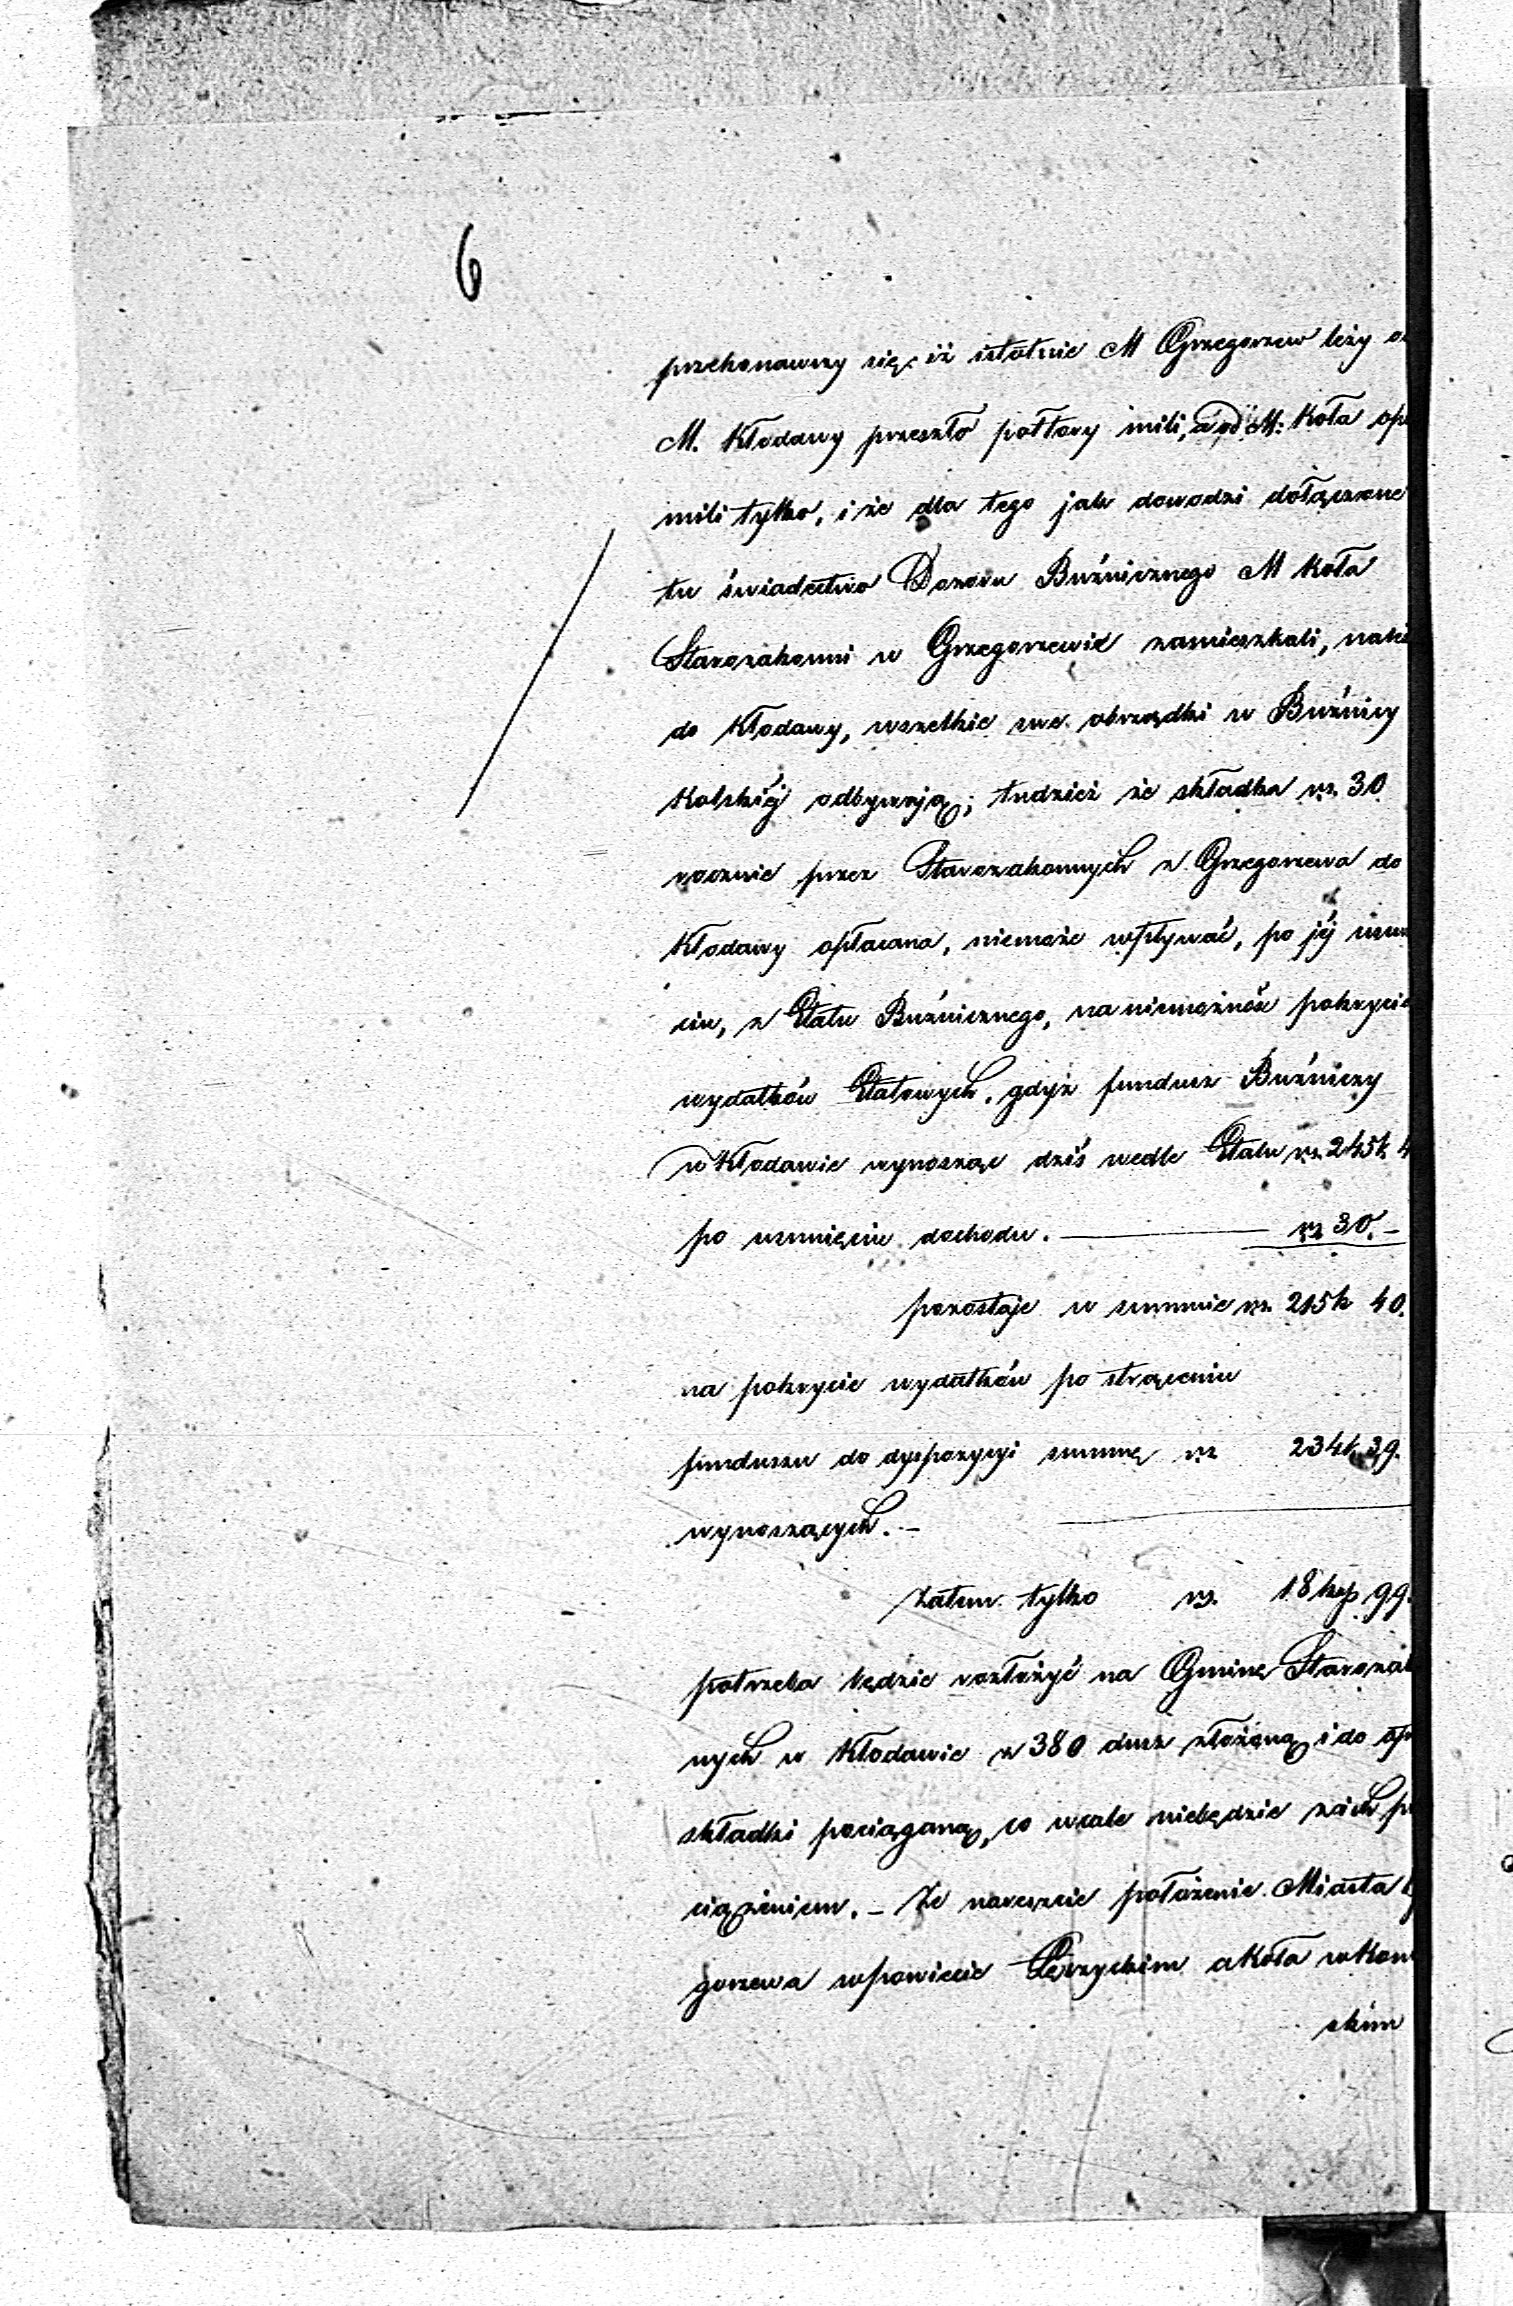 6
przekonawszy się iż istotnie M Grzegorzew leży o
M. Kłodawy przeszło półtory mili, a od M: Koła
mili tylko, i że dla tego jak dowodzi dołączone
tu świadectwo Dozoru Bużnicznego M Koła
Starozakonni w Grzegorzewie zamieszkali,
do Kłodawy, wszelkie swe obrządki w Bużnicy
Kolskiéj odbywają; tudzież że składka rs. 30
rocznie przez Starozakonnych z Grzegorzewa do
Kłodawy opłacana, niemoże wpływać, po jéj usu
ciu, z Etatu Bużnicznego, na niemożność pokrycia
wydatków Etatowych, gdyż fundusz Bużniczy
w Kłodawie wynosząc dziś wedle Etatu rs. 245 k 4
po usunięciu dochodu. — rs 30. –
pozostaje w summie rs. 215 k 40.
na pokrycie wydatków po strąceniu
funduszu do dyspozycyi summę rs 234 k 39.
wynoszących. –
Zatem tylko rs. 18 kop 99.
potrzeba będzie rozłożyć na Gminę Starozak
nych w Kłodawie z 380 dusz złożoną i do op
składki pociąganą, co wcale niebędzie z ich p
ciążeniem. – Że nareszcie położenie Miasta
gorzewa w powiecie Łęczyckim a Koła w Kon
skim